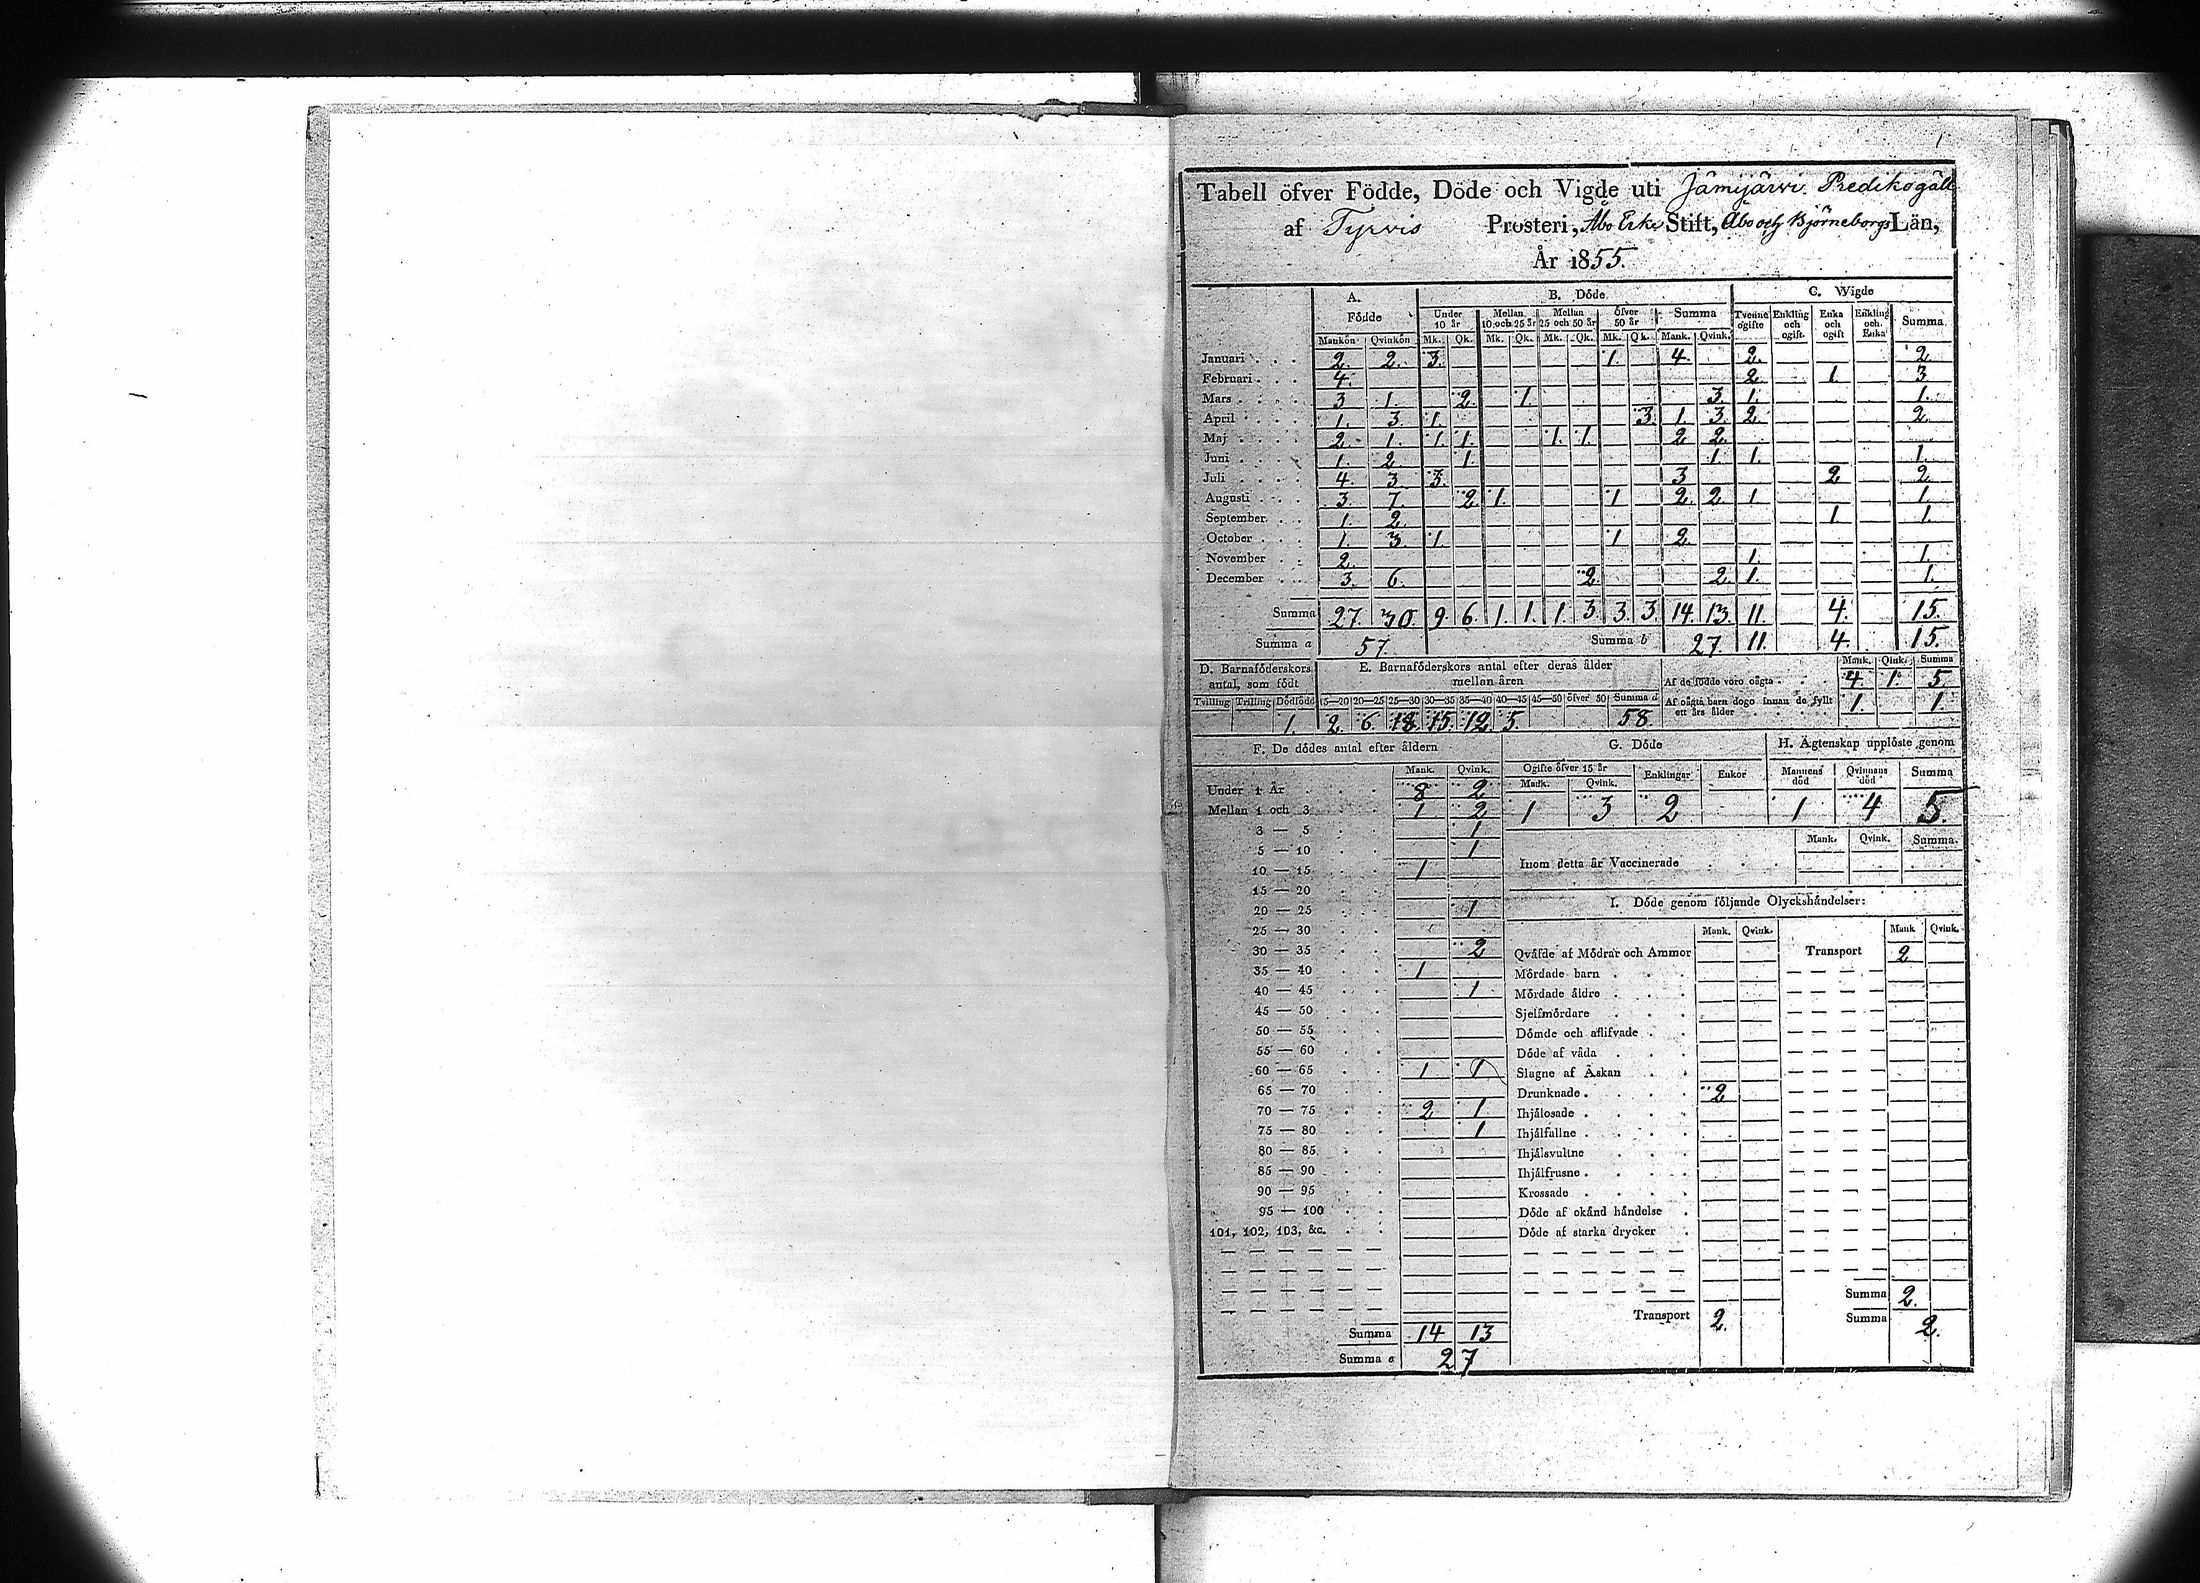 1
Tabell öfver Födde, Döde och Vigde uti Jämijärvi Predikogäll
af Tyrvis Prosteri, Åbo Erke Stift, Åbo och Björneborgs Län,
År 1855.
A. Födde B. Döde C. Wigde
Under 10 år Mellan 10 och 25 år Mellan 25 och 50 år öfver 50 år Summa Tvenne ogifte Enkling och ogift. Enka och ogift Enkling och Enka Summa
Mankön Qvinkön Mk. Qk. Mk. Qk. Mk. Qk. Mk. Qk. Mank. Qvink.
Januari . . . 2. 2. 3. 1. 4. 2. 2.
Februari . . . 4. 2. 1. 3.
Mars . . . . 3 1. 2. 1. 3. 1. 1.
April . . . 1. 3. 1. 3. 1 3. 2. 2.
Maj . . . . 2. 1. 1. 1. 1. 1. 2 2.
Juni . . . . 1. 2. 1. 1. 1. 1.
Juli . . . . 4. 3 3. 3 2 2.
Augusti . . . 3. 7. 2. 1. 1 2. 2. 1 1.
September . . 1. 2. 1. 1.
October . . . 1. 3. 1. 1 2.
November . . 2. 1. 1.
December . . 3. 6. 2. 2. 1. 1.
Summa 27. 30. 9. 6. 1. 1. 1. 3. 3. 3. 14. 13. 11. 4. 15.
Summa a 57. Summa b 27. 11. 4. 15.
D. Barnaföderskors antal, som födt
Tvilling Trilling Dödfödd
1.
E. Barnaföderskors antal efter deras ålder mellan åren
15—20 20—25 25—30 30—35 35—40 40—45 45—50 öfver 50 Summa d
2. 6. 18. 15. 12. 5. 58.
Mank. Qink. Summa
Af de födde voro oägta . . . 4. 1. 5.
Af oägta barn dogo innan de fyllt ett års ålder . . . 1. 1.
F. De dödes antal efter åldern
Mank. Qvink.
Under 1 År . . . 8 2
Mellan 1 och 3 . . 1 2
3 — 5 . . 1
5 — 10 . . 1
10 — 15 . . 1
15 — 20 . .
20 — 25 . . 1
25 — 30 . .
30 — 35 . . 2
35 — 40 . . 1
40 — 45 . . 1
45 — 50 . .
50 — 55 . .
55 — 60 . .
60 — 65 . . 1 1
65 — 70 . .
70 — 75 . . 2 1
75 — 80 . . 1
80 — 85 . .
85 — 90 . .
90 — 95 . .
95 — 100 . .
101, 102, 103, &c. . .
Summa 14 13
Summa e 27
G. Döde
Ogifte öfver 15 år Enklingar Enkor
Mank. Qvink.
1 3 2
H. Ägtenskap upplöste genom
Mannens död Qvinnans död Summa
1 4 5.
Mank. Qvink. Summa.
Inom detta år Vaccinerade . . .
I. Döde genom följande Olyckshändelser:
Mank. Qvink. Mank Qvink.
Qväfde af Mödrar och Ammor Transport 2
Mördade barn . . .
Mördade äldre . . .
Sjelfmördare . . .
Dömde och aflifvade . .
Döde af våda . . .
Slagne af Åskan . .
Drunknade . . . . 2
Ihjälosade . . . .
Ihjälfallne . . . .
Ihjälsvultne . . .
Ihjälfrusne . . . .
Krossade . . . .
Döde af okänd händelse .
Döde af starka drycker .
Summa 2.
Transport 2. Summa 2.